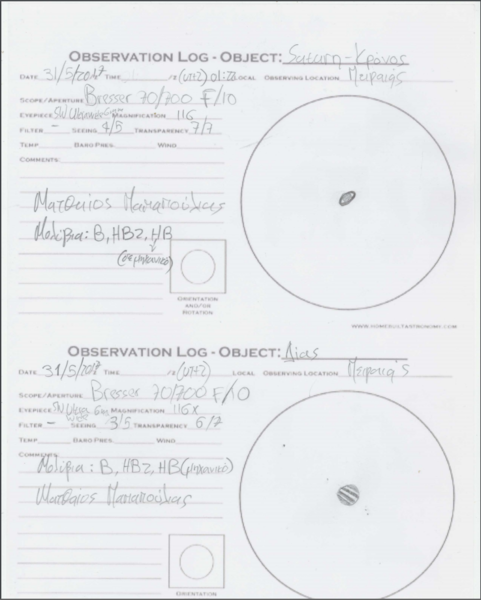 OBSERVATION LOG - OBJECT: Saturn - Κρόνος
DATE 31/5/2017 TIME /2 (UT+2) 01:22 LOCAL OBSERVING LOCATION Πειραιάς
SCOPE/APERTURE Bresser 70/700 F/10
EYEPIECE SW MAGNIFICATION 116
FILTER - SEEING 4/5 TRANSPARENCY 7/7
TEMP BARO PRES. WIND
COMMENTS:
Ματθαίος Παπαπούλιας
Μολύβια: B, HB2, HB
(μηχανικό)
ORIENTATION
AND/OR
ROTATION
OBSERVATION LOG - OBJECT: Δίας
DATE 31/5/2017 TIME /2 (UT+2) LOCAL OBSERVING LOCATION Πειραιάς
SCOPE/APERTURE Bresser 70/700 F/10
EYEPIECE SW 6m MAGNIFICATION 116x
FILTER - SEEING 3/5 TRANSPARENCY 6/7
TEMP BARO PRES. WIND
COMMENTS
Μολύβια: B, HB2, HB (μηχανικό)
Ματθαίος Παπαπούλιας
ORIENTATION